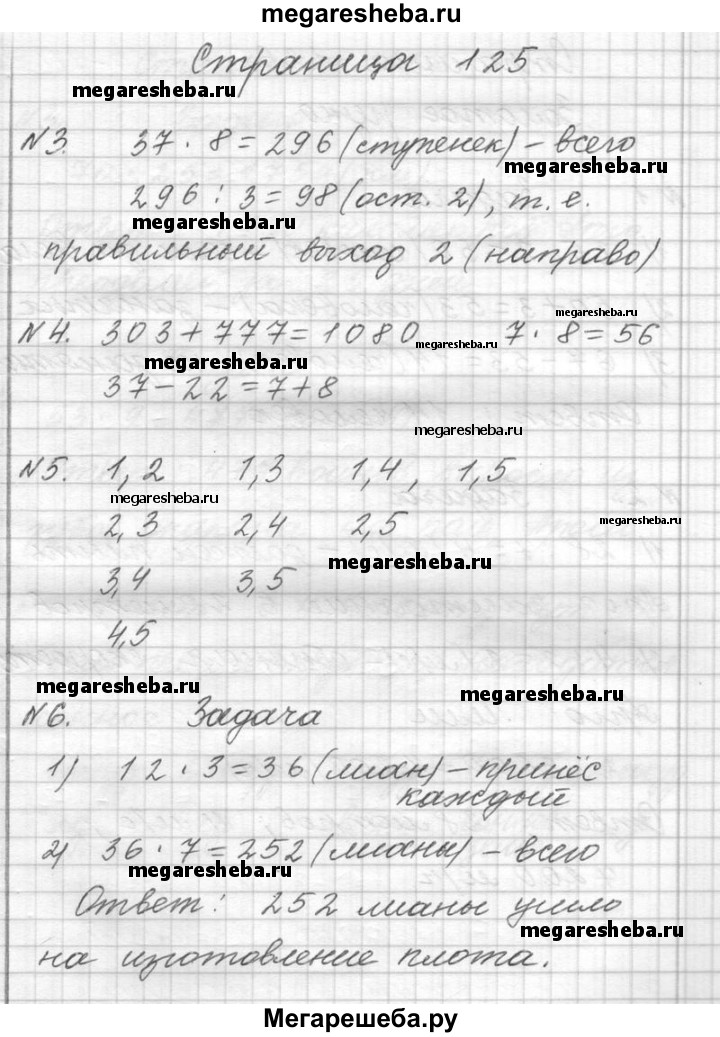 megaresheba.ru
Страница 125
megaresheba.ru
N3. 37 · 8 = 296 (ступенек) - всего
megaresheba.ru
296 : 3 = 98 (ост. 2), т. е.
megaresheba.ru
правильный выход 2 (направо)
megaresheba.ru
N4. 303 + 777 = 1080 7 · 8 = 56
megaresheba.ru
megaresheba.ru
37 - 22 = 7 + 8
megaresheba.ru
N5. 1,2 1,3 1,4, 1,5
megaresheba.ru
2,3 2,4 2,5
megaresheba.ru
megaresheba.ru
3,4 3,5
4,5
megaresheba.ru
megaresheba.ru
N6. Задача
1) 12 · 3 = 36 (лиан) - принёс
каждый
2) 36 · 7 = 252 (лианы) - всего
megaresheba.ru
Ответ: 252 лианы ушло
megaresheba.ru
на изготовление плота.
Мегарешеба.ру